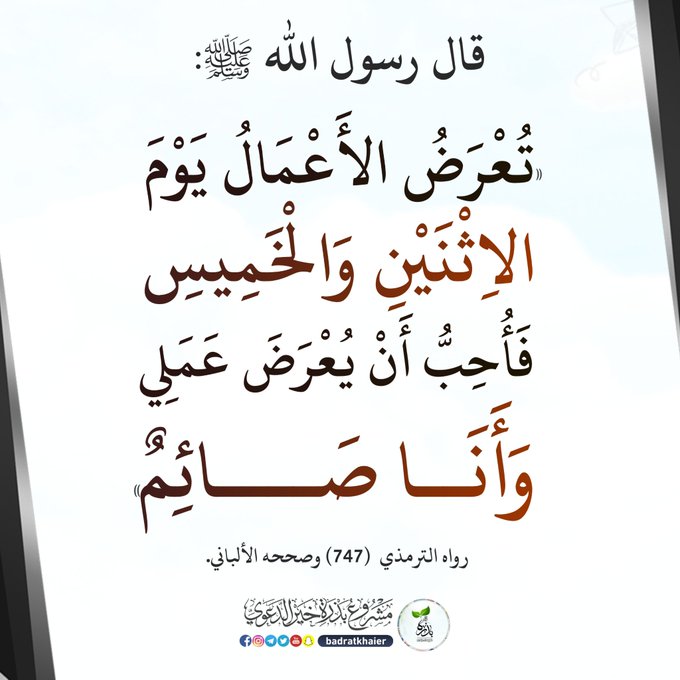 قال رسول الله ﷺ:
«تُعْرَضُ الأَعْمَالُ يَوْمَ
الاِثْنَيْنِ وَالْخَمِيسِ
فَأُحِبُّ أَنْ يُعْرَضَ عَمَلِي
وَأَنَـا صَـــائِمٌ»
رواه الترمذي (747) وصححه الألباني.
مشروع بذرة خير الدعوي
بذرة
badratkhaier